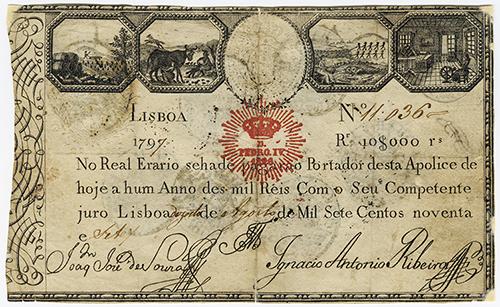 LISBOA Nº 11.036
1797. Rs 10$000 rs
D.
PEDRO IV
1826
No Real Erario se ha de ao Portador desta Apolice de
hoje a hum Anno des mil Reis Com o Seu Competente
juro Lisboa de Agosto de Mil Sete Centos noventa
e Set
Joaq Joze de Souza Ignacio Antonio Ribeiro